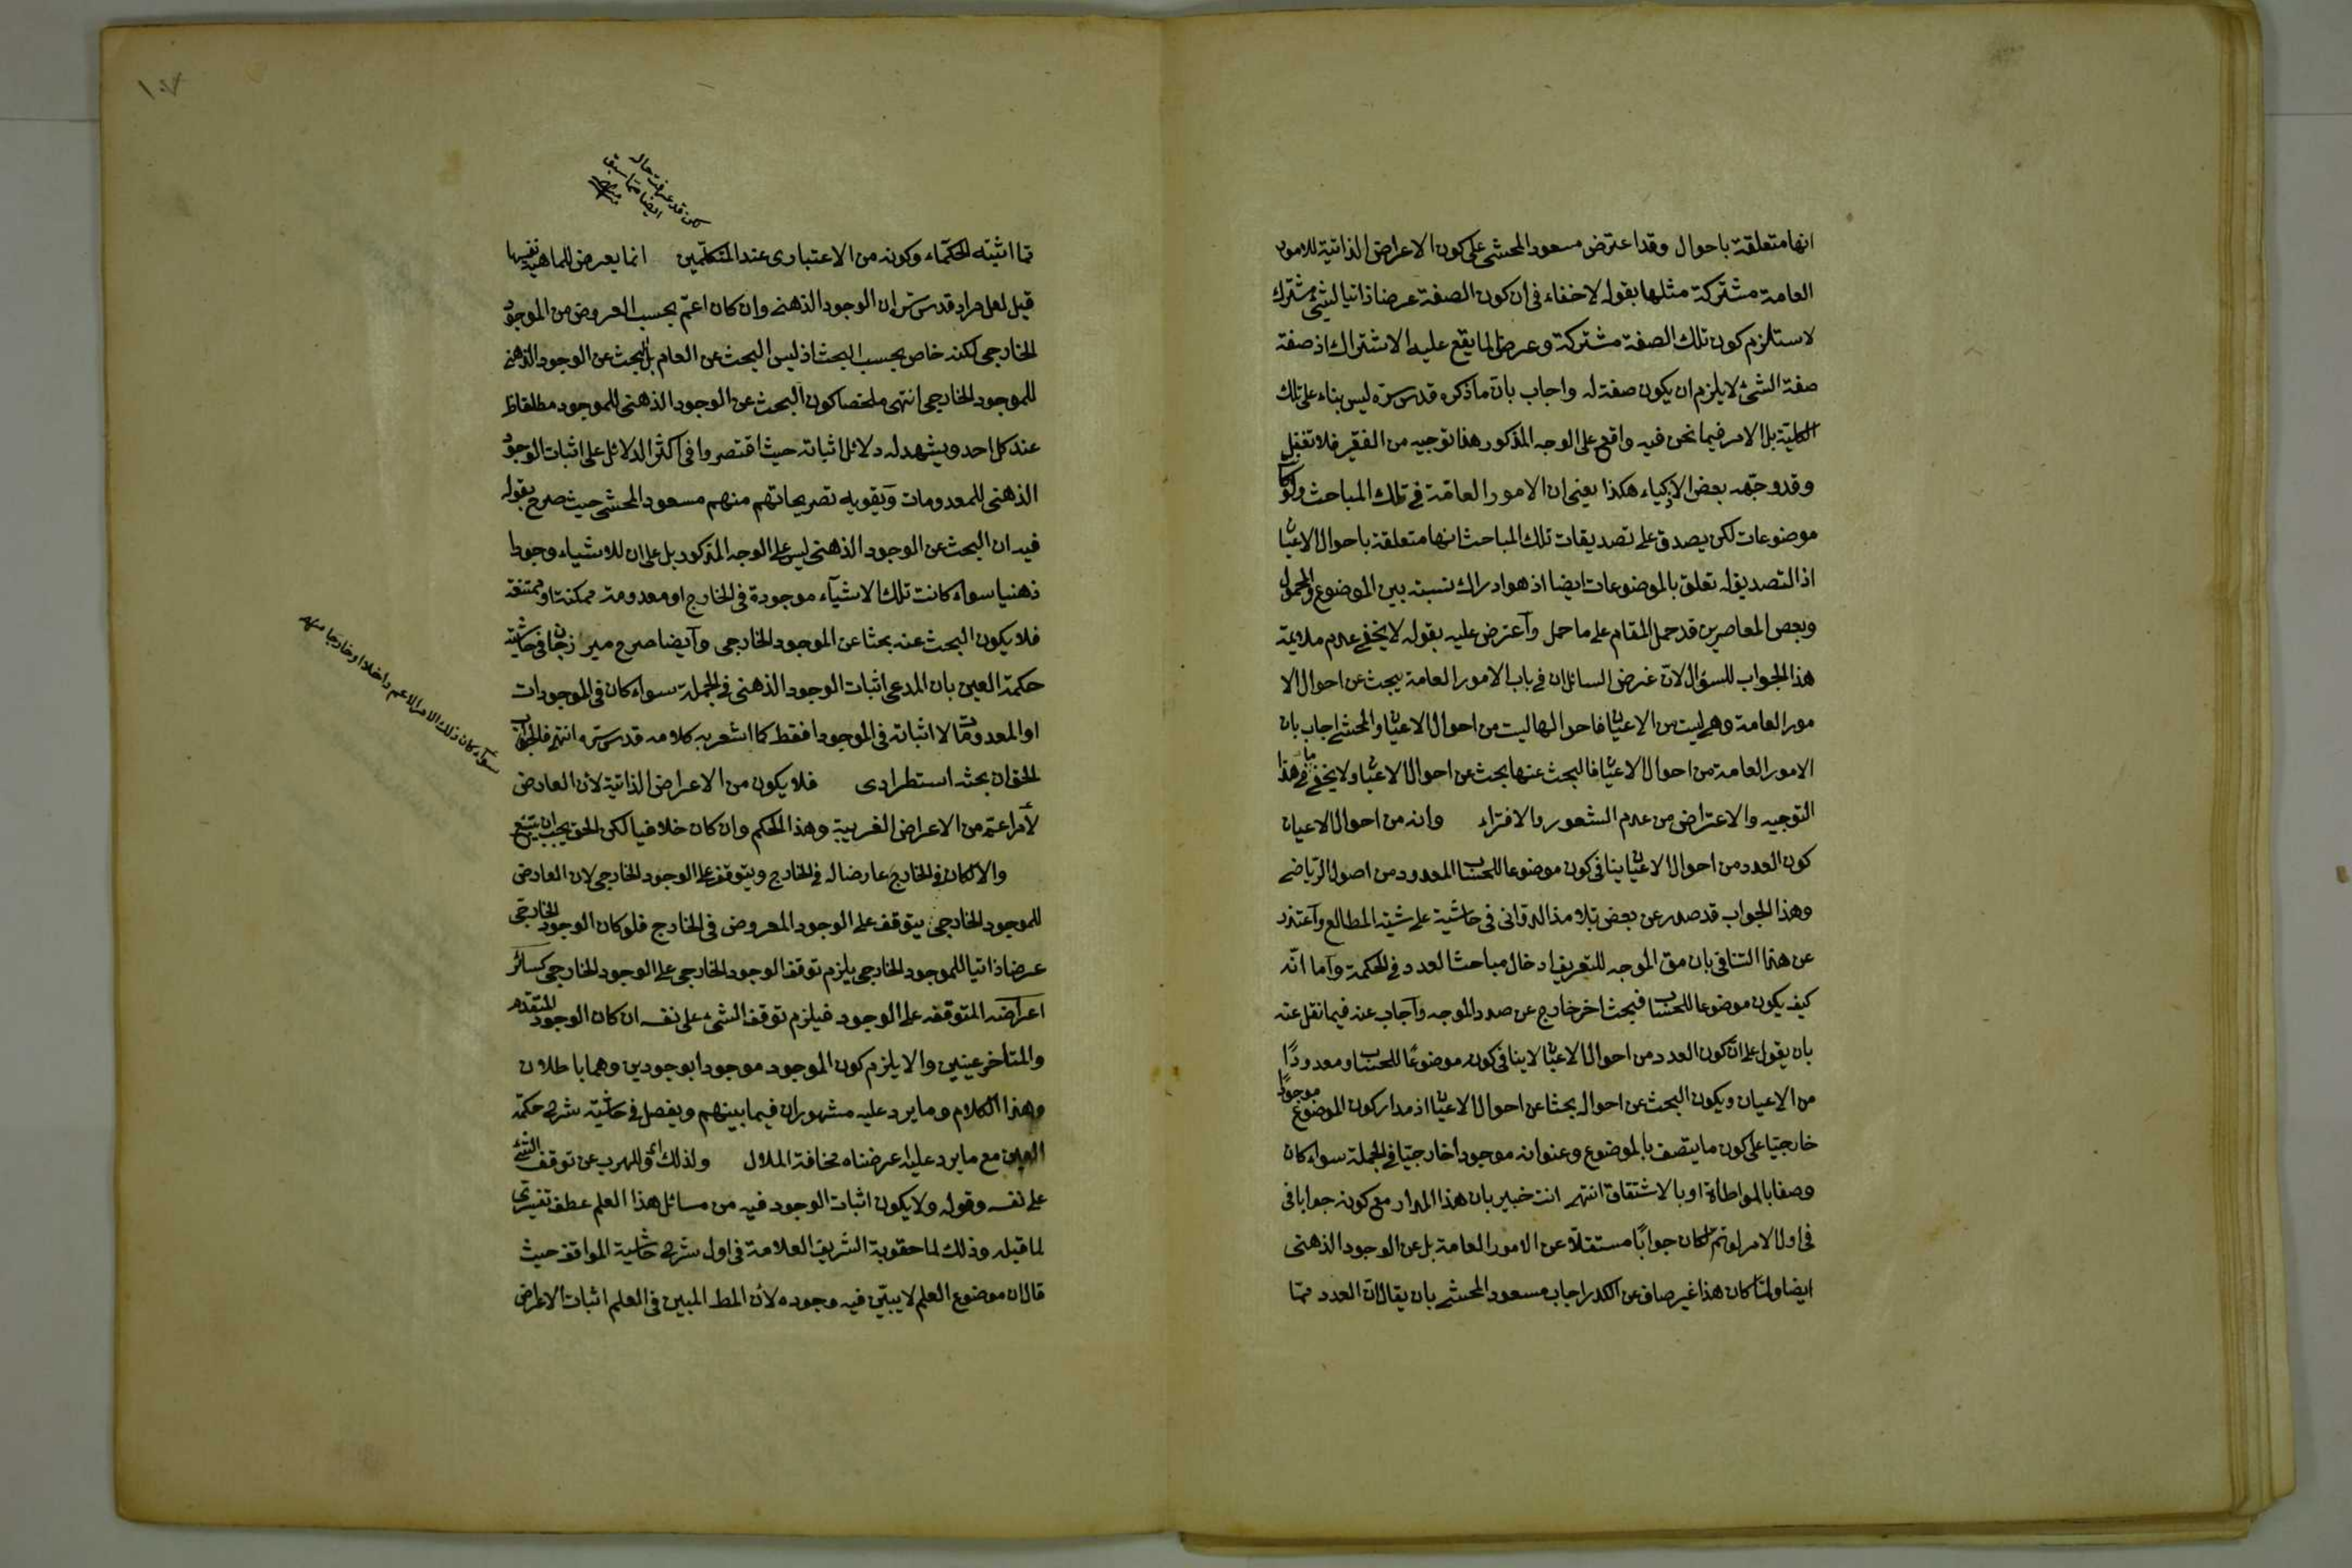 انها متعلقة باحوال وقد اعترض مسعود المحشى على كون الاعراض الذاتية للامور
العامة مشتركة مثلها بقوله لا خفاء فى ان كون الصفة عرضا ذاتيا لشئ مشترك
لا ستلزم كون تلك الصفة مشتركة وعرضا لما يقع عليه الاشتراك اذ صفة
صفة الشئ لا يلزم ان يكون صفة له واجاب بان ما ذكره قدس سره ليس بناء على تلك
الكلية بل الامر فيما نحن فيه واقع على الوجه المذكور هذا توجيه من الفقير فلا تغفل
وقد وجهه بعض الاذكياء هكذا يعنى ان الامور العامة فى تلك المباحث ولو كانت
موضوعات لكن يصدق على تصديقات تلك المباحث انها متعلقة باحوال الاعيان
اذ التصديق له تعلق بالموضوعات ايضا اذ هو ادراك نسبته بين الموضوع والمحمول
وبعض المعاصرين قد حمل المقام على ما حمل وآعترض عليه بقوله لا يخفى عدم ملايمة
هذا الجواب للسؤال لانّ غرض السائل ان فى باب الامور العامة يبحث عن احوال الا
مور العامة وهى ليست من الاعيان فاحوالها ليست من احوال الاعيان والمحشى اجاب بان
الامور العامة من احوال الاعيان فالبحث عنها بحث عن احوال الاعيان ولا يخفى ما فى هذا
التوجيه والاعتراض من عدم الشعور والافتراء وانه من احوال الاعيان
كون العدد من احوال الاعيان ينافى كون موضوعا للحساب المعدود من اصول الرياضى
وهذا الجواب قد صدر عن بعض تلامذ الدوانى فى حاشية على شية المطالع وآعتذر
عن هذا التنافى بان مق الموجه للتعريف ادخال مباحث العدد فى الحكمة وآما انّه
كيف يكون موضوعا للحساب فبحث اخر خارج عن صدد الموجه وآجاب عنه فيما نقل عنه
بان يقول على انّ كون العدد من احوال الاعيان لا ينافى كون موضوعًا للحساب ومعدودًا
من الاعيان ويكون البحث عن احواله بحثا عن احوال الاعيان اذ مدار كون الموضوع موجودًا
خارجيّا على كون ما يتصف بالموضوع وعنوانه موجودا خارجيّا فى الجملة سواء كان
وصفا بالمواطأة او بالاشتقاق انتهى انت خبير بان هذا المدار مع كونه جوابا فى
فى اول الامر لو تم لكان جوابًا مستقلّا عن الامور العامة بل عن الوجود الذهنى
ايضا ولمّا كان هذا غير صاف عن الكدر اجاب مسعود المحشى بان يقال انّ العدد ممّا
١٠٧
لكن قد عرفت حال
ايضا ممّا سبق
منه
مّما اثبته الحكماء وكونه من الاعتبارى عند المتكلّمين انما يعرض للماهية نفسها
قيل لعل مراد قدس سرّه ان الوجود الذهنى وان كان اعمّ بحسب العروض من الموجود
الخارجى لكنه خاص بحسب البحث اذ ليس البحث عن العام بل البحث عن الوجود الذهنى
للموجود الخارجى انتهى ملخصا كون البحث عن الوجود الذهنى للموجود مطلقا ظ
عند كل احد ويشهد له دلائل اثباته حيث اقتصروا فى اكثر الدلائل على اثبات الوجود
الذهنى للمعدومات وآيقويه تصريحاتهم منهم مسعود المحشى حيث صرح بقوله
فيه ان البحث عن الوجود الذهنى ليس على الوجه المذكور بل على ان للاشياء وجودا
ذهنيا سواء كانت تلك الاشيآء موجودة فى الخارج او معدومة ممكنة او ممتنعة
فلا يكون البحث عنه بحثا عن الموجود الخارجى وآيضا صرح مير زجان فى حاشية
حكمة العين بان المدعى اثبات الوجود الذهنى فى الجملة سواء كان فى الموجودات
او المعدومات لا اثباته فى الموجود افقط كما اشعر به كلامه قدس سّره انتهى فالجواب
الحق ان بحثه استطرادى فلا يكون من الاعراض الذاتية لان العارض
لأمر اعمّ من الاعراض الغريبة وهذا الحكم وان كان خلافيا لكن الحق يجب ان يتبع
سوآء كان ذلك الامر الاعم داخلا او خارجا منه
والا لكان فى الخارج عارضا له فى الخارج ويتوقف على الوجود الخارجى لان العارض
للموجود الخارجى يتوقف على الوجود المعروض فى الخارج فلو كان الوجود الخارجى
عرضا ذاتيا للموجود الخارجى يلزم توقف الوجود الخارجى على الوجود الخارجى كسائر
اعراضه المتوقفه على الوجود فيلزم توقف الشئ على نفسه ان كان الوجود المتقدم
والمتأخر عينين والا يلزم كون الموجود موجودا بوجودين وهما باطلان
وهذا الكلام وما يرد عليه مشهوران فيما بينهم ويفصل فى حاشية شرح حكمة
العين مع ما يرد عليه اعرضناه مخافة الملال ولذلك اى وللهرب عن توقف الشئ
على نفسه وقوله ولا يكون اثبات الوجود فيه من مسائل هذا العلم عطف تفسيرى
لما قبله وذلك لما حققوبة الشريف العلامة فى اول شرح حاشية المواقف حيث
قال ان موضوع العلم لا يبيّن فيه وجوده لأن المط المبين فى العلم اثبات الاعراض